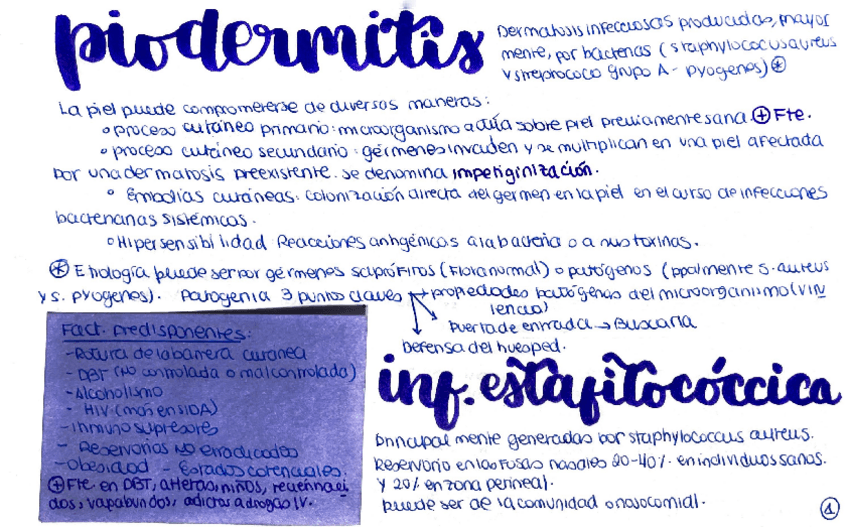 piodermitis
Dermatosis infecciosas producidas, mayor
mente, por bacterias (staphylococcus aureus
y streptococo grupo A - pyogenes) *
La piel puede comprometerse de diversas maneras:
° proceso cutáneo primario: microorganismo actúa sobre piel previamente sana ⊕ Fte.
° proceso cutáneo secundario: gérmenes invaden y se multiplican en una piel afectada
por una dermatosis preexistente. se denomina impetiginización.
° Embolias cutáneas: colonización directa del germen en la piel en el curso de infecciones
bacterianas sistémicas.
° Hipersensibilidad Reacciones antigénicas a la bacteria o a sus toxinas.
* Etiología puede ser por gérmenes saprófitos (flora normal) o patógenos (ppalmente s. aureus
y s. pyogenes). Patogenia 3 puntos claves → propiedades patógenas del microorganismo (viru
lencias)
Puerta de entrada → Buscarla
Defensa del huesped.
Fact. predisponentes:
- Rotura de la barrera cutánea
- DBT (no controlada o mal controlada)
- Alcoholismo
- HIV (más en SIDA)
- Inmunosupresores
- Reservorios no erradicados
- Obesidad - Estados carenciales.
⊕ Fte. en DBT, atletas, niños,
dos, vagabundos, adictos a drogas IV.
inf. estafilocóccica
principalmente generadas por staphylococcus aureus.
Reservorio en las fosas nasales 20-40% en individuos sanos.
y 20% en zona perineal.
puede ser de la comunidad o nosocomial.
1